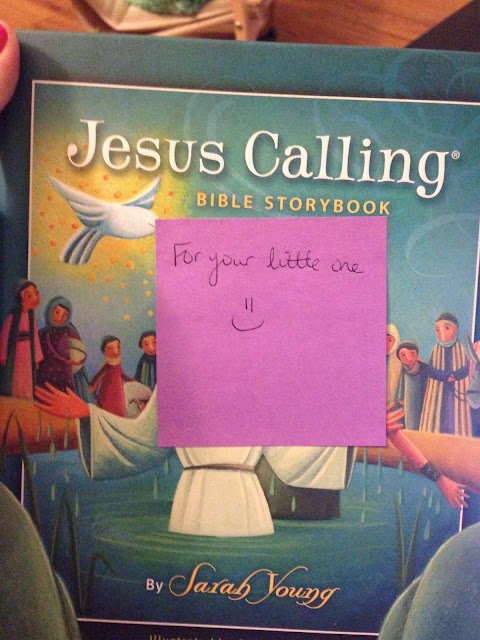 Jesus Calling®
BIBLE STORYBOOK
For your little one
By Sarah Young